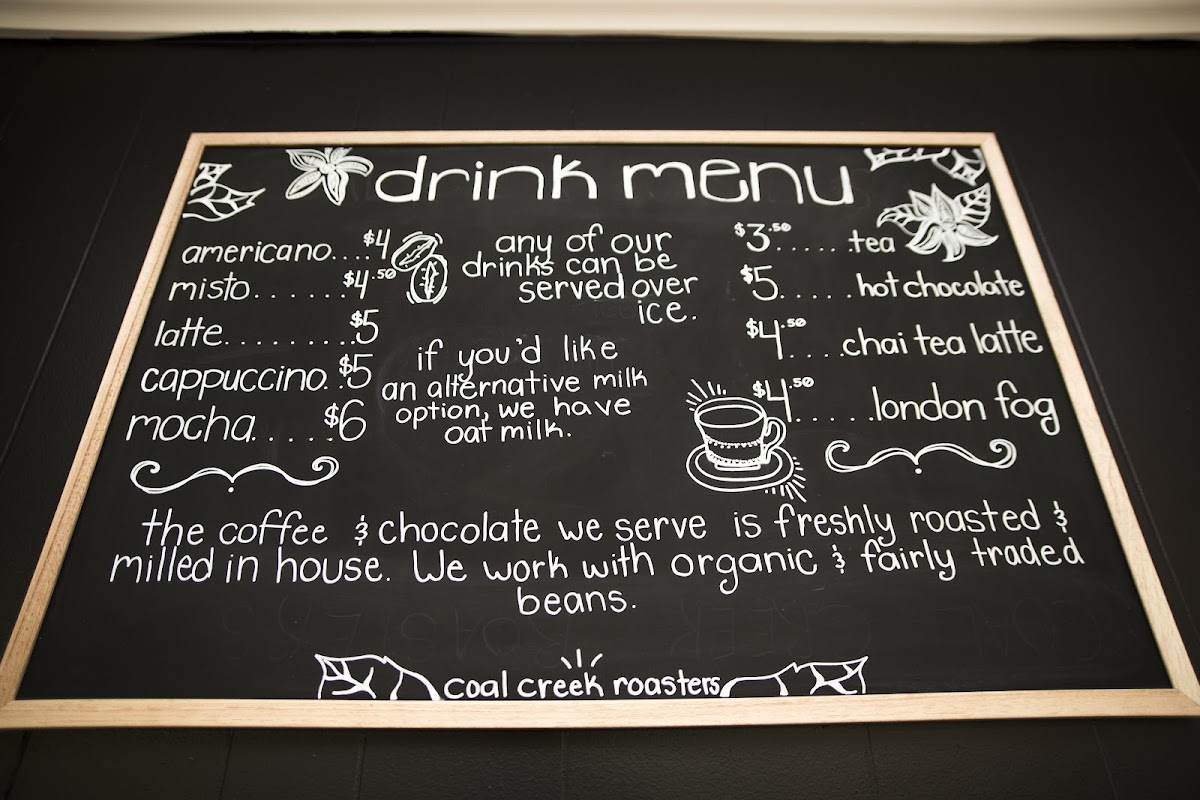 drink menu
americano....$4
misto.......$4.50
latte.........$5
cappuccino..$5
mocha.....$6
any of our
drinks can be
served over
ice.
if you'd like
an alternative milk
option, we have
oat milk.
$3.50.....tea
$5.....hot chocolate
$4.50....chai tea latte
$4.50.....london fog
the coffee & chocolate we serve is freshly roasted &
milled in house. We work with organic & fairly traded
beans.
coal creek roasters